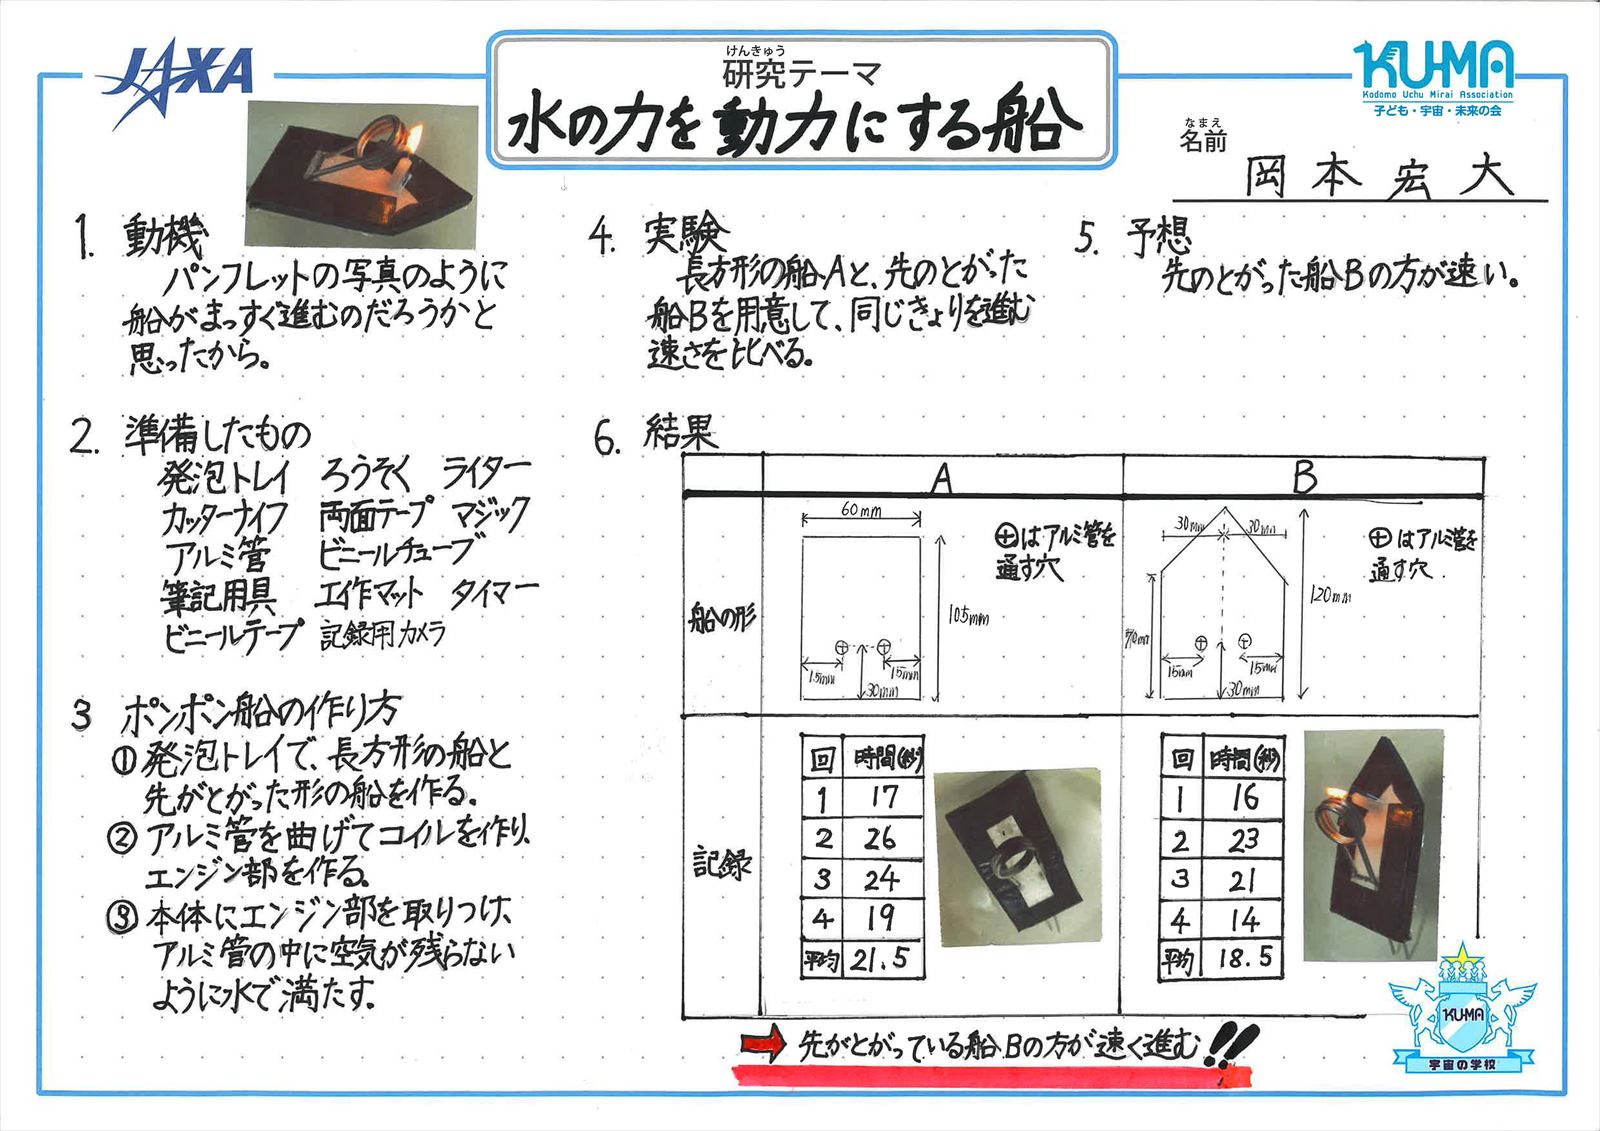 JAXA
けんきゅう
研究テーマ
水の力を動力にする船
KU-MA
Kodomo Uchu Mirai Association
子ども・宇宙・未来の会
なまえ
名前
岡本宏大
1. 動機
パンフレットの写真のように
船がまっすぐ進むのだろうかと
思ったから。
2. 準備したもの
発泡トレイ ろうそく ライター
カッターナイフ 両面テープ マジック
アルミ管 ビニールチューブ
筆記用具 工作マット タイマー
ビニールテープ 記録用カメラ
3 ポンポン船の作り方
①発泡トレイで、長方形の船と
先がとがった形の船を作る。
②アルミ管を曲げてコイルを作り、
エンジン部を作る。
③本体にエンジン部を取りつけ、
アルミ管の中に空気が残らない
ように水で満たす。
4. 実験
長方形の船Aと、先のとがった
船Bを用意して、同じきょりを進む
速さを比べる。
5. 予想
先のとがった船Bの方が速い。
6. 結果
A
B
船の形
60mm
⊕はアルミ管を
通す穴
105mm
15mm
15mm
30mm
30mm
30mm
⊕はアルミ管を
通す穴
120mm
70mm
15mm
15mm
30mm
記録
回 時間(秒)
1 17
2 26
3 24
4 19
平均 21.5
回 時間(秒)
1 16
2 23
3 21
4 14
平均 18.5
先がとがっている船Bの方が速く進む!!
KU-MA
宇宙の学校